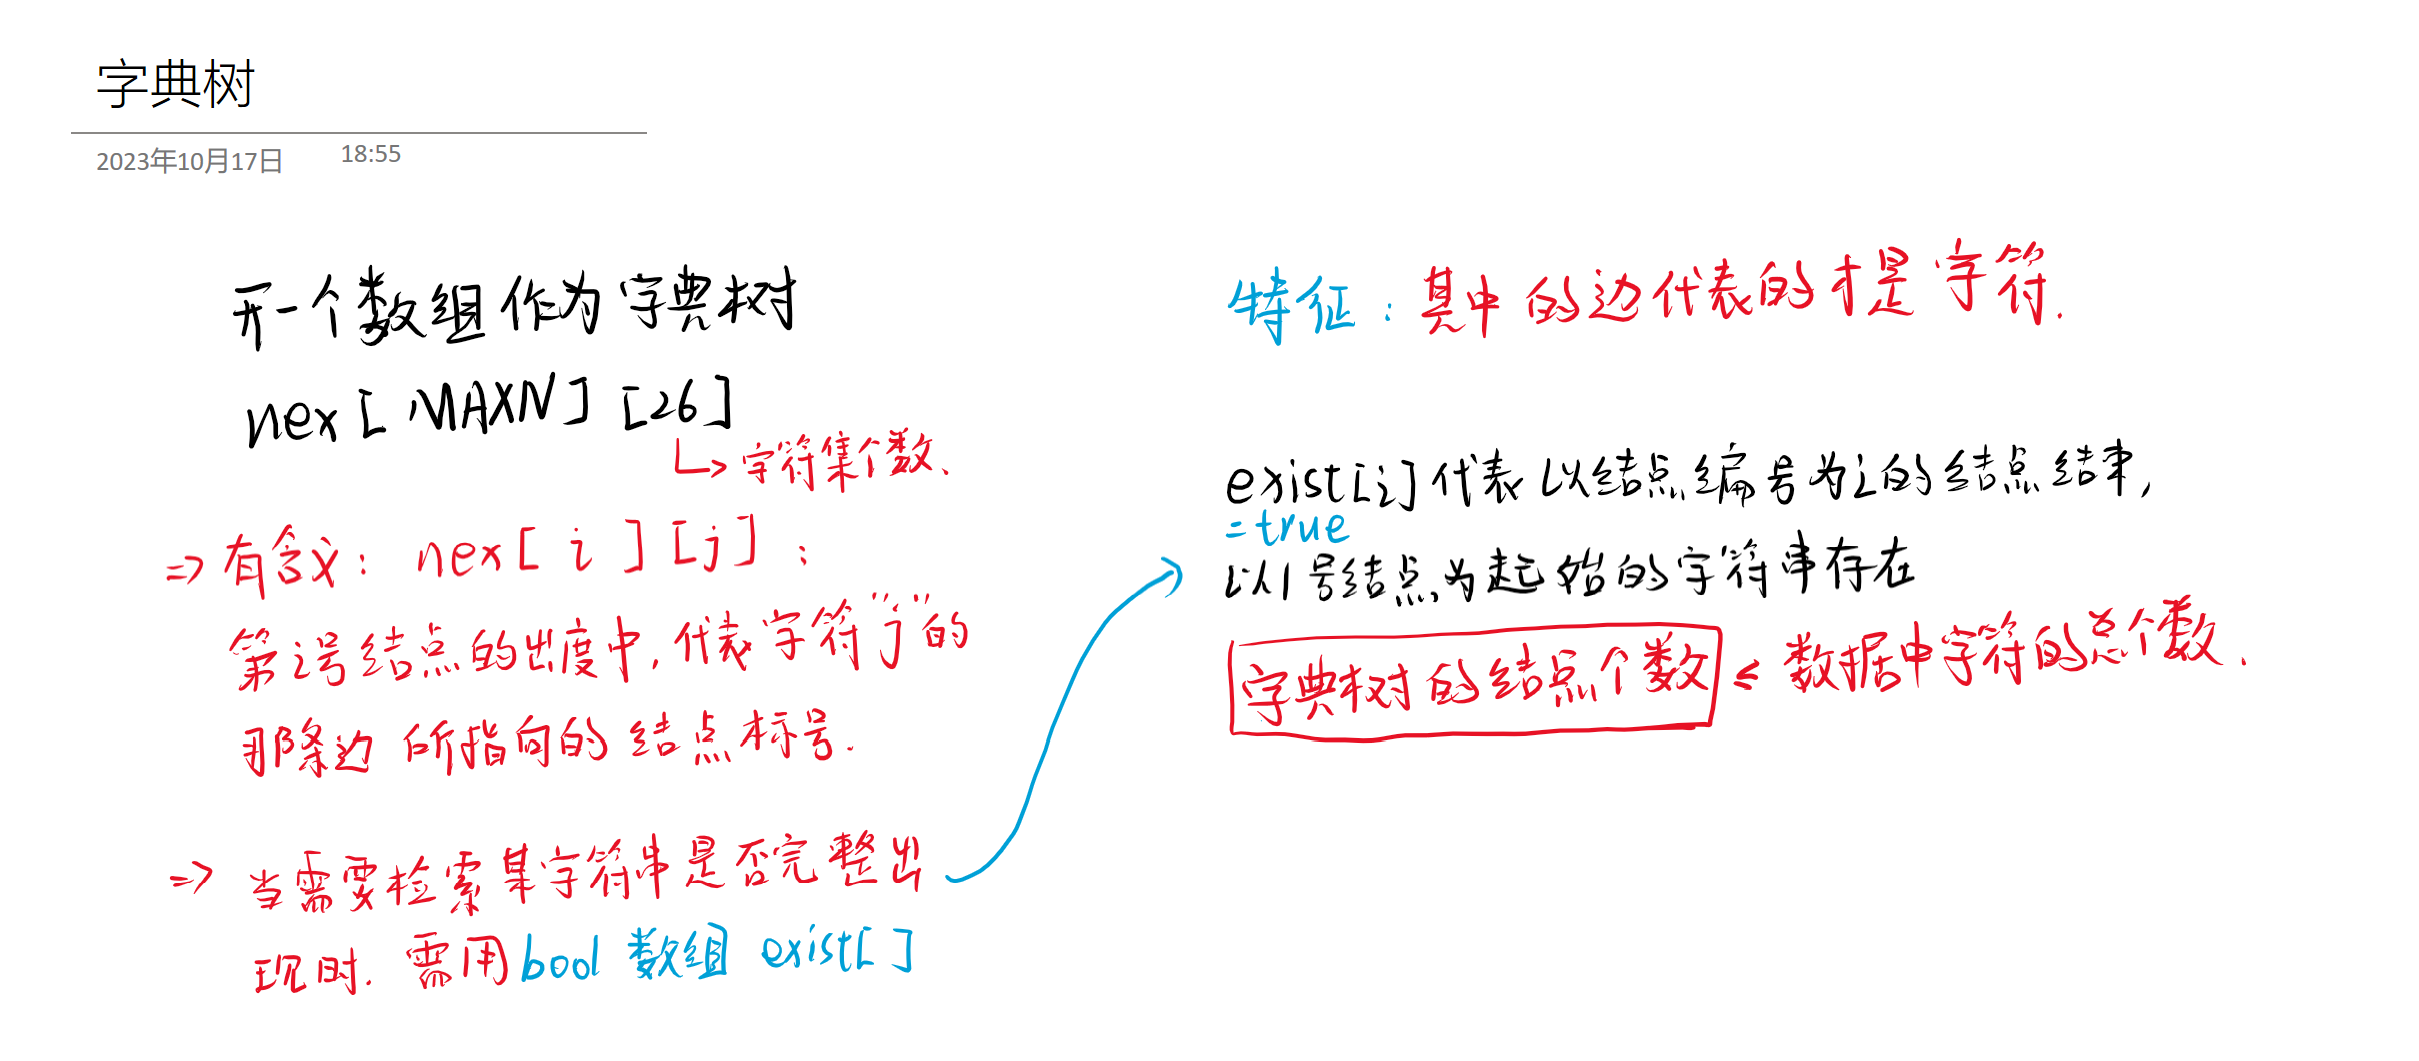 字典树
2023年10月17日 18:55
开一个数组作为字典树
nex[MAXN][26]
↳字符集个数.
⇒有含义: nex[i][j];
第i号结点的出度中,代表字符"j"的
那条边所指向的结点标号.
⇒当需要检索某字符串是否完整出
现时.需用bool数组 exist[]
特征:其中的边代表的才是字符.
exist[i]代表以结点编号为i的结点结束,
=true
以1号结点为起始的字符串存在
字典树的结点个数≤数据中字符的总个数.